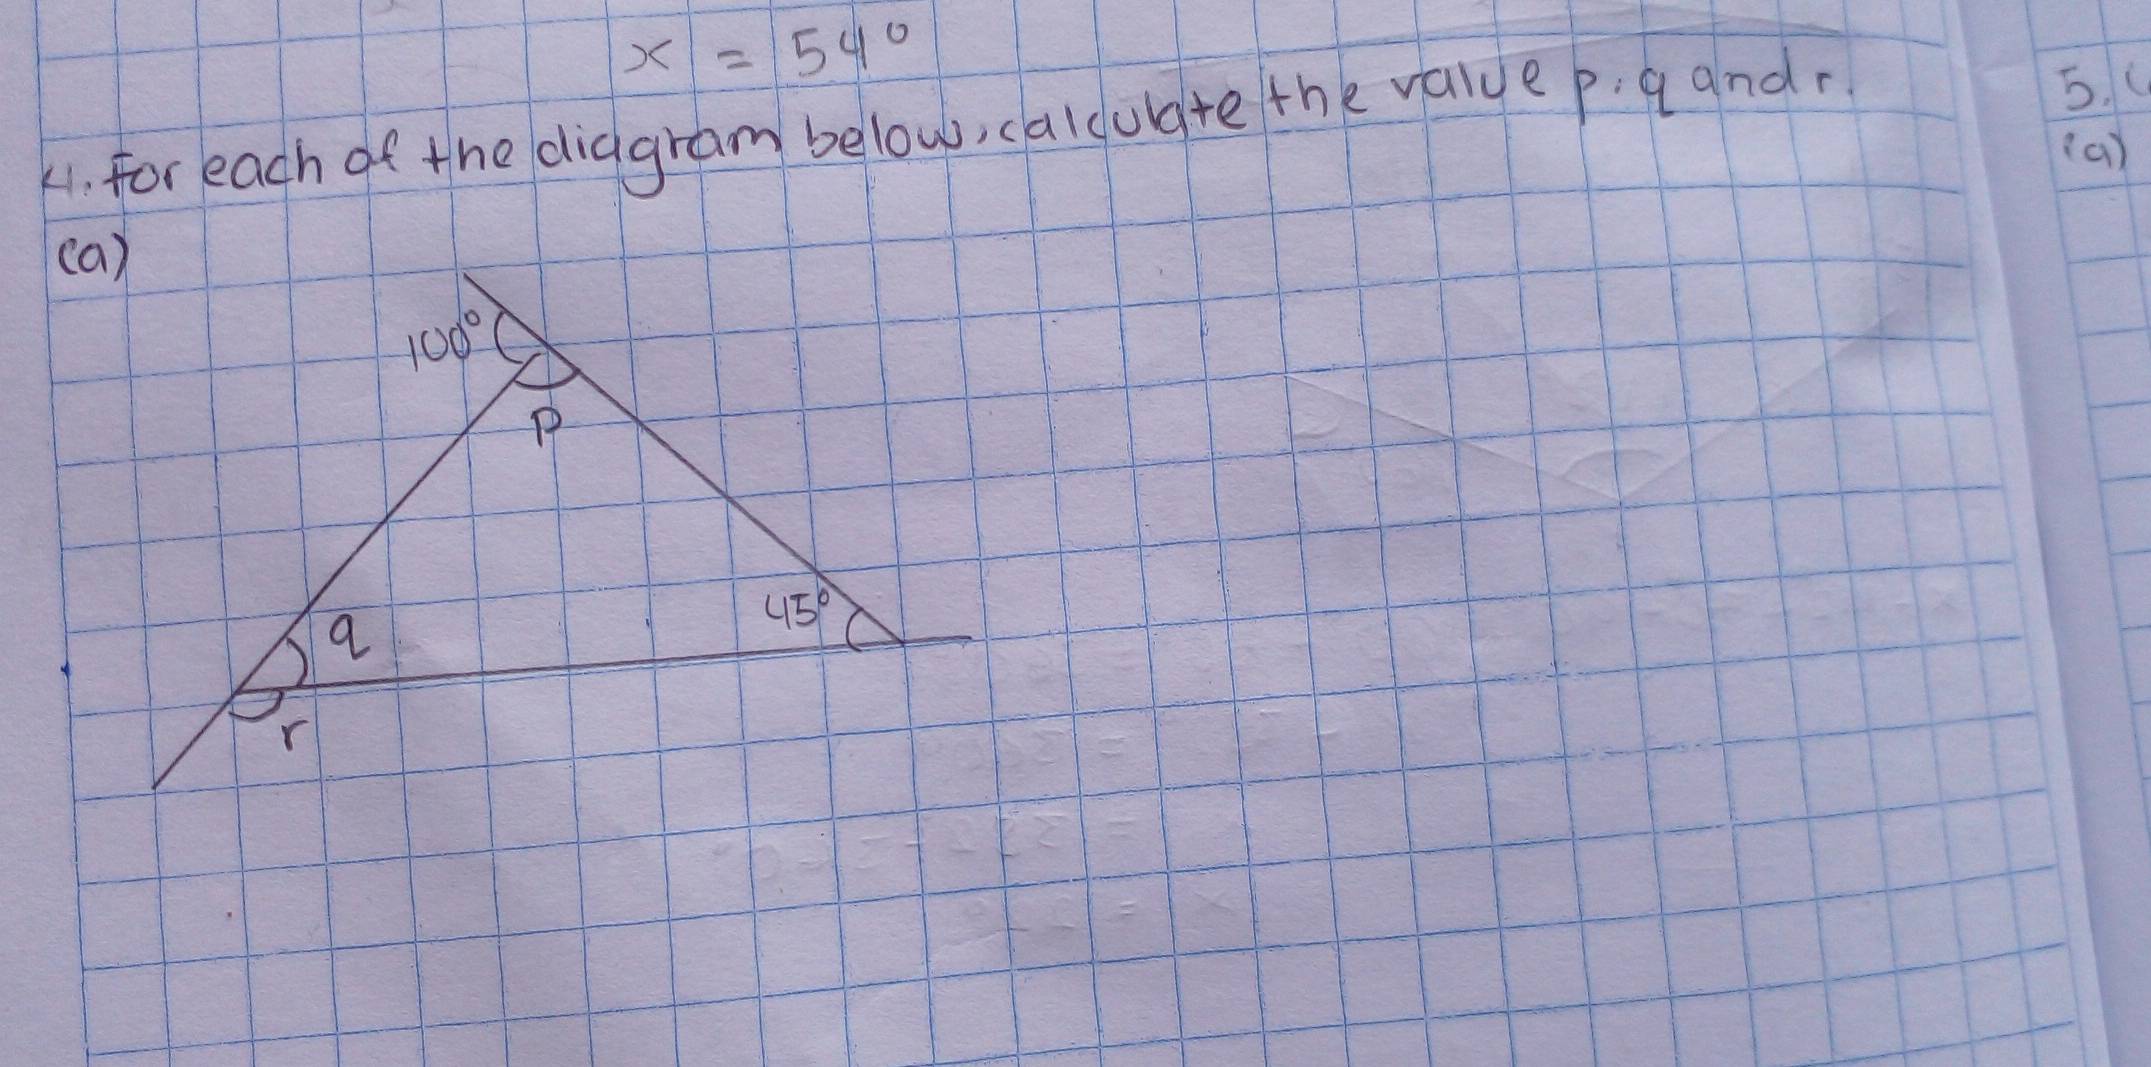 x = 54°
4. For each of the diagram below, calculate the value p, q and r.
(a)
100°
p
45°
q
r
5.
(a)